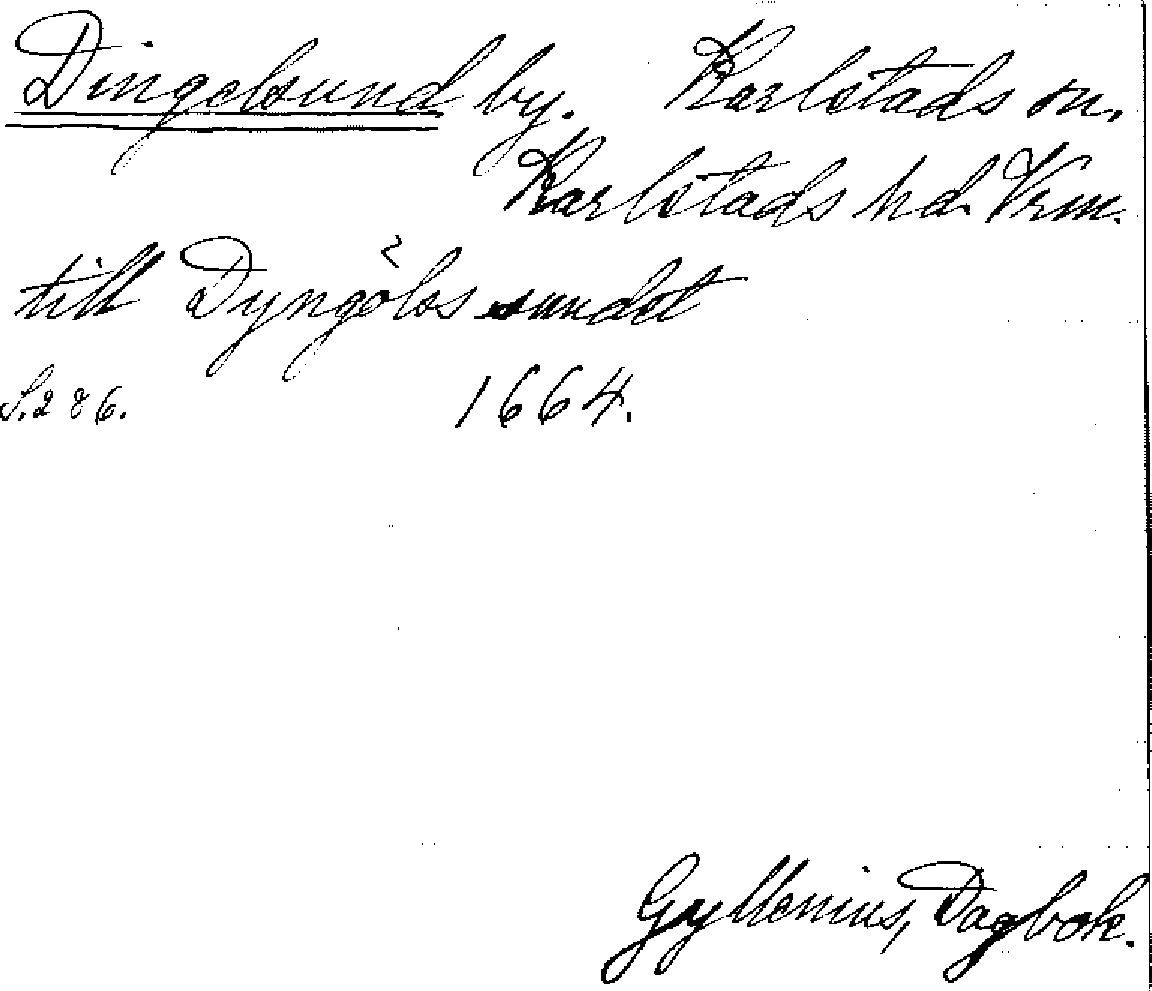 Dingelsund by. Karlstads sn.
Karlstads hd. Vrm.
till Dyngöls sundet
S. 286. 1664.
Gyllenius, Dagbok.